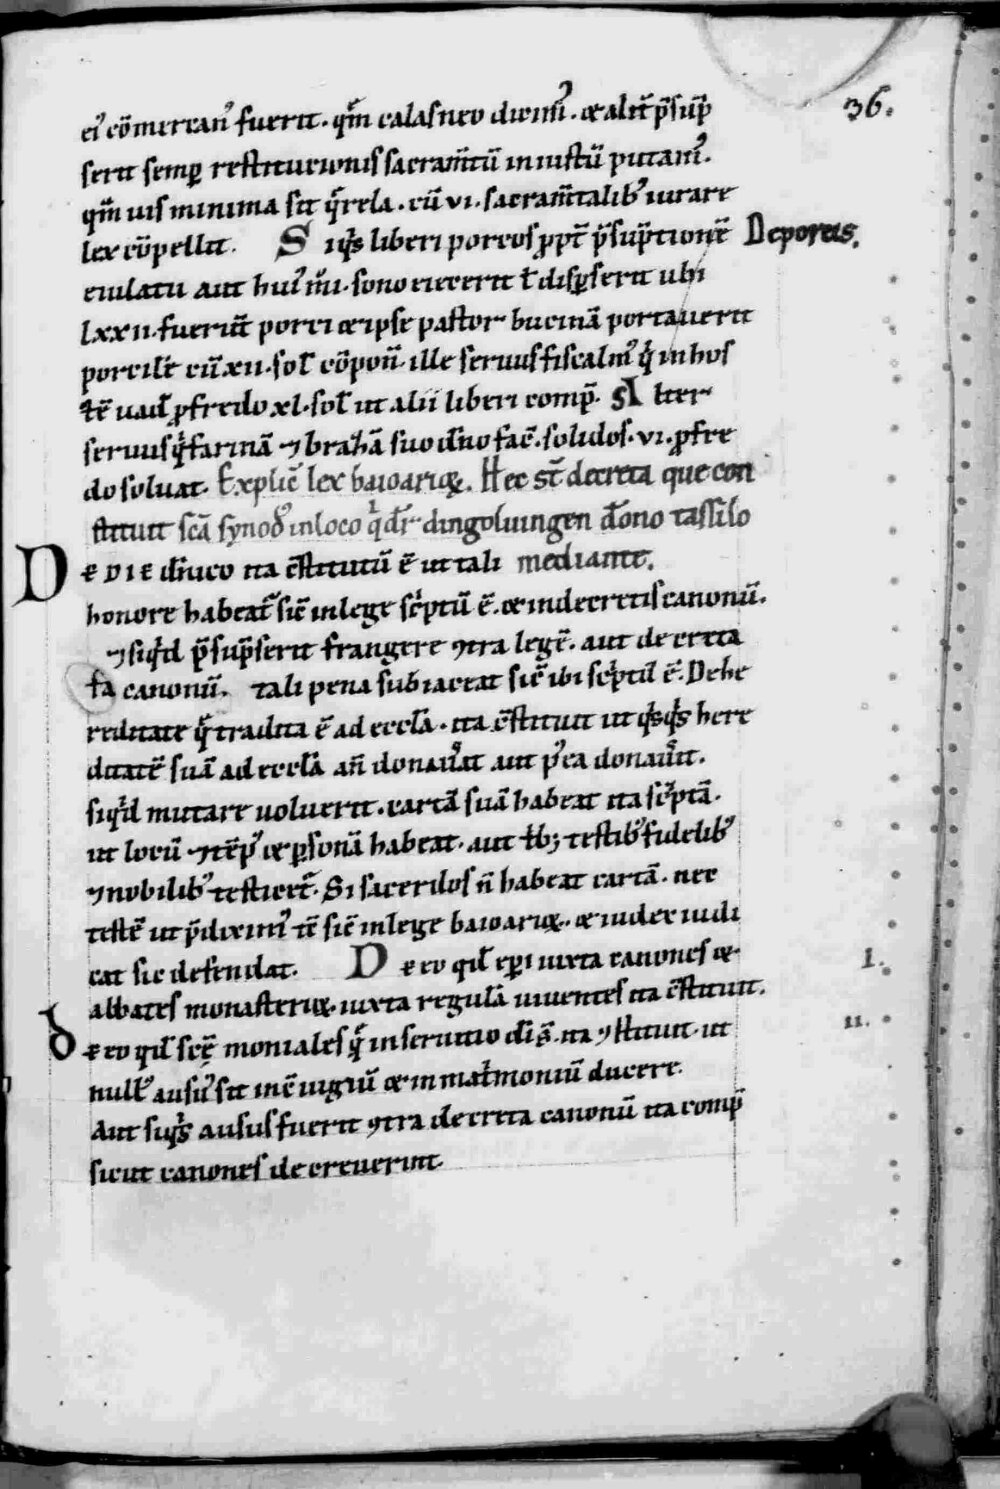 36.
ei᾽ cō mercan᾽ fuerit. qm̄ calasneo dicim᾽. & alit̄ p̄sūp
serit semp̱ restitucionis sacram̄tū iniustū putam᾽.
qm̄ uis minima sit q̄rela. cū vi. sacram̄talib᾽ iurare
lex cōpellit. Siq̇s liberi porcos ꝓpt̄ p̄sūptionē De porcis.
eiulatu aut hui᾽ m̄i. sono eiecerit ł disp̱serit ubi
lxxii. fuerit̄ porci & ipse pastor bucinā portauerit
porcił cū xii. soł cōpon̄. ille seruus fiscalin᾽ q̇ in hos
tē uad̄ ꝓ fredo xl. soł ut alii liberi comp̄. SI lter
seruus q̇ farinā ⁊ brahā suo dn̄o fac̄. solidos. vi. ꝓ fre
do soluat. Explic̄ lex baioarioꝝ. Hec st̄ decreta que con
stituit scā synod᾽ in loco q̇ dr̄ dingoluingen dōno tassilo
DE DIE dn̄ico ita c̄stitutū ē ut tali mediante.
honore habeat᾽ sic̄ in lege sc̓ptū ē. & in decretis canonū.
⁊ siq̇d p̄sūpserit frangere ꝯtra legē. aut decreta
ta canonū. tali pena subiaceat sic̄ ibi sc̓ptū ē. De he
reditate q̄ tradita ē ad ecclā. ita c̄stituit ut q̇sq̇s here
ditatē suā ad ecclā an̄ donau᾽at aut p᾽ea donau᾽it.
siq̇d mutare uoluerit. cartā suā habeat ita sc̓ptā.
ut locū ⁊ tēp᾽ & p̱sonā habeat. aut t̄bꝫ testib᾽ fidelib᾽
⁊ nobilib᾽ testicet᾽. Si sacerdos n̄ habeat cartā. nec
testē ut p̄dixim᾽ tē sic̄ in lege baioarioꝝ. & iudex iudi
cat sic defendat. De eo qd̄ ep̄i iuxta canones &
I.
abbates monasterioꝝ. iuxta regulā uiuentes ita c̄stituit.
II.
De eo qd̄ scę̄ moniales q̄ in seruitio dī s̄. ita ꝯstituit. ut
null᾽ ausu᾽ sit in ē uigiū & in mat̓moniū ducere.
Aut siq̇s ausus fuerit ꝯtra decreta canonū ita comp̄
sicut canones decreuerint.